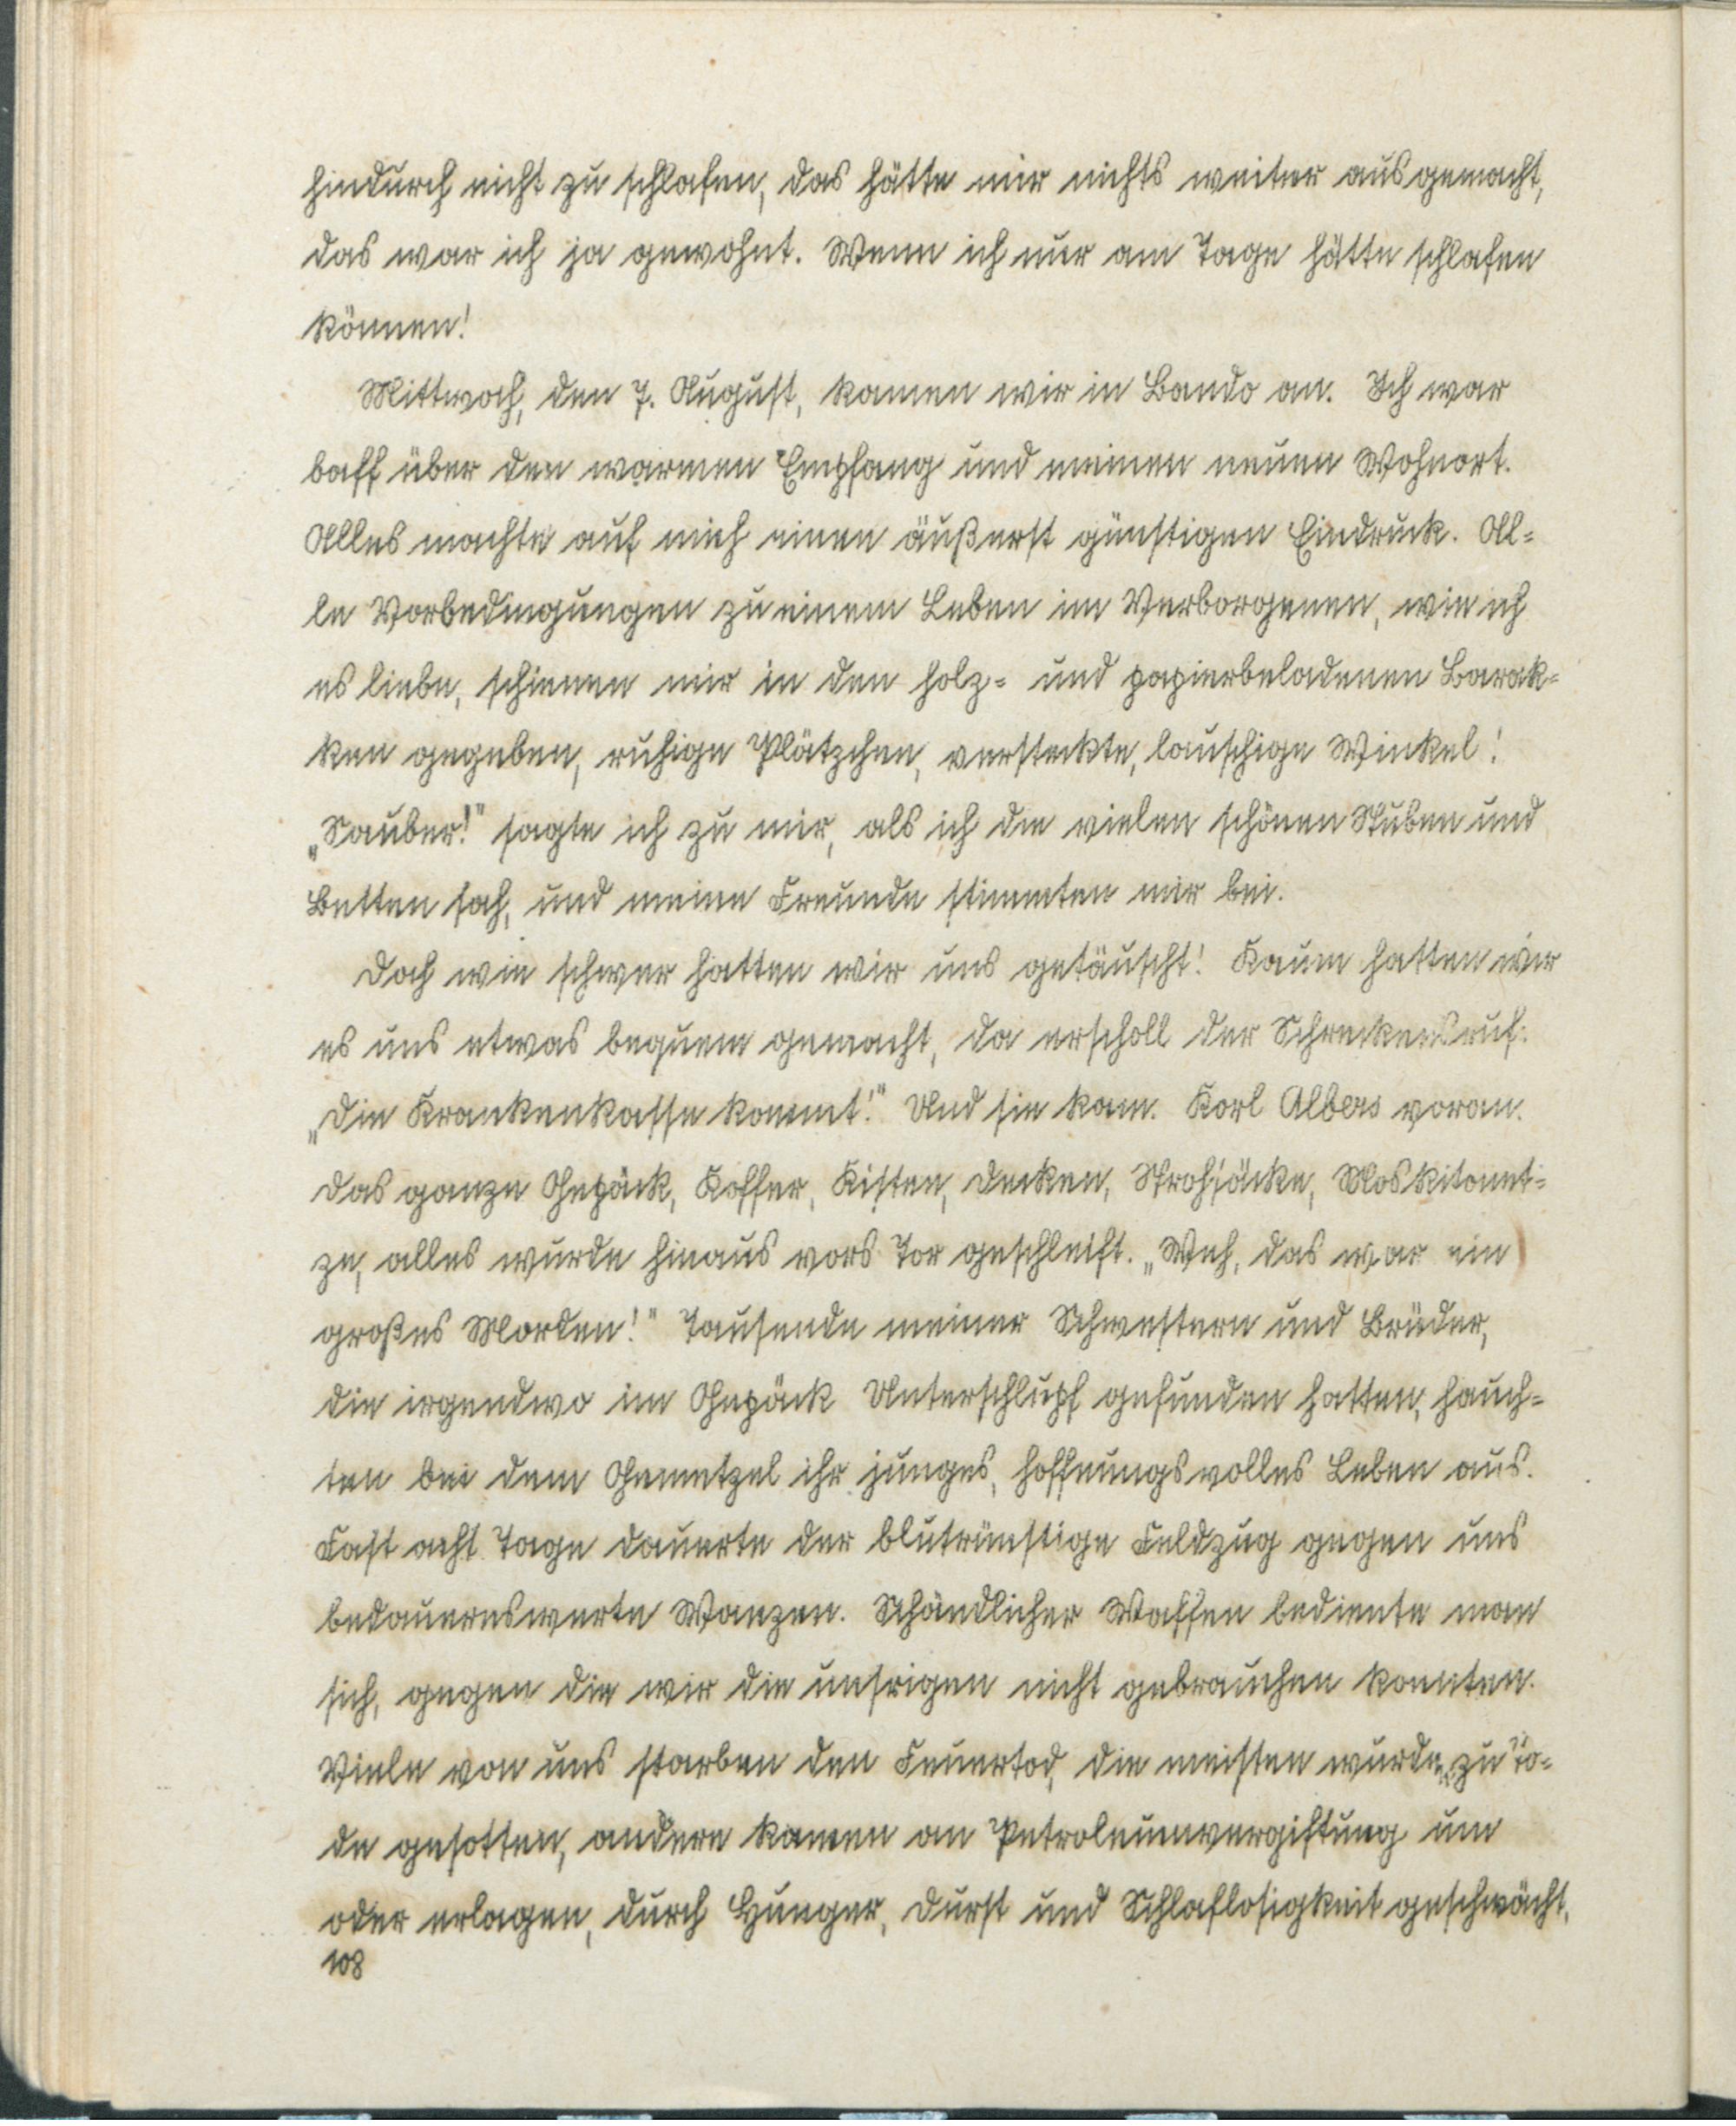 hindurch nicht zu schlafen, das hätte mir nichts weiter ausgemacht,
das war ich ja gewohnt. Wenn ich nur am Tage hätte schlafen
können!
Mittwoch, den 7. August, kamen wir in Bando an. Ich war
baff über den warmen Empfang und meinen neuen Wohnort.
Alles machte auf mich einen äußerst günstigen Eindruck. Al=
le Vorbedingungen zu einem Leben im Verborgenen, wie ich
es liebe, schienen mir in den holz= und papierbeladenen Barak=
ken gegeben, ruhige Plätzchen, versteckte, lauschige Winkel!
„Sauber!" sagte ich zu mir, als ich die vielen schönen Stuben und
Betten sah, und meine Freunde stimmten mir bei.
Doch wie schwer hatten wir uns getäuscht! Kaum hatten wir
es uns etwas bequem gemacht, da erscholl der Schreckensruf:
„Die Krankenkasse kommt!" Und sie kam. Karl Albers voran.
Das ganze Gepäck, Koffer, Kisten, Decken, Strohsäcke, Moskitonet=
ze, alles wurde hinaus vors Tor geschleift. „Weh, das war ein
großes Morden!" Tausende meiner Schwestern und Brüder,
die irgendwo im Gepäck Unterschlupf gefunden hatten, hauch=
ten bei dem Gemetzel ihr junges, hoffnungsvolles Leben aus.
Fast acht Tage dauerte der blutrünstige Feldzug gegen uns
bedauernswerte Wanzen. Schändlicher Waffen bediente man
sich, gegen die wir die unsrigen nicht gebrauchen konnten.
Viele von uns starben den Feuertod, die meisten wurden zu To=
de gesotten, andere kamen an Petroleumvergiftung um
oder erlagen, durch Hunger, Durst und Schlaflosigkeit geschwächt,
108